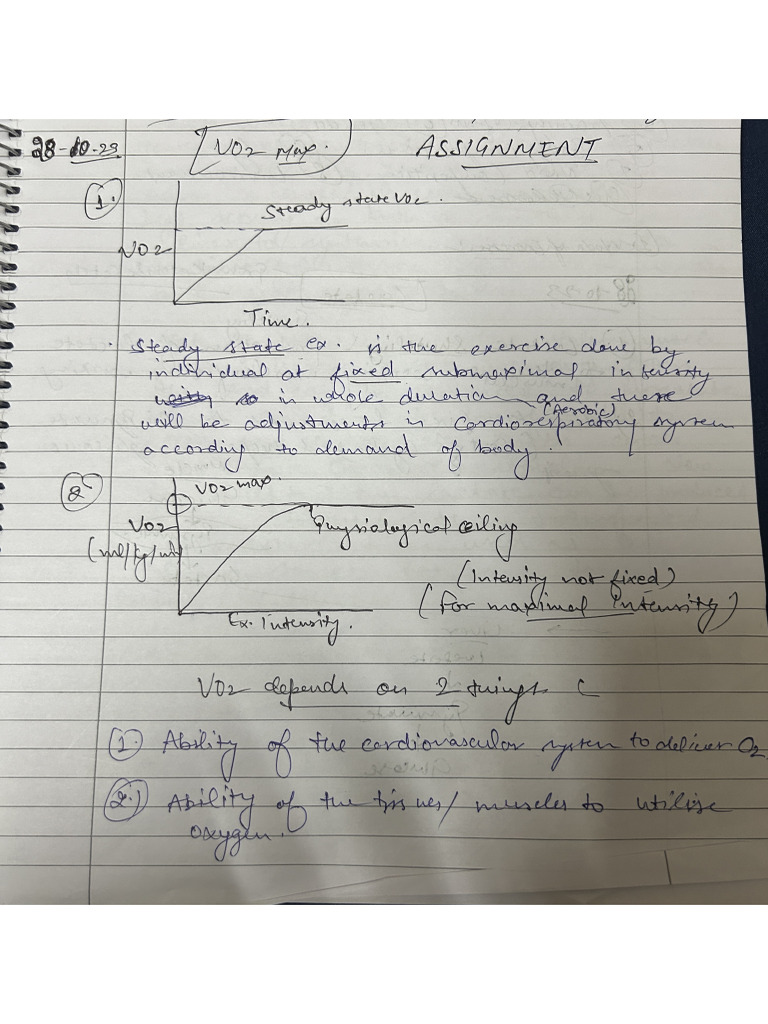 28-10-23 VO2 Max. ASSIGNMENT
1.
Steady state VO2.
VO2
Time.
. Steady state ex. is the exercise done by
individual at fixed submaximal intensity
in whole duration and there
(Aerobic)
will be adjustments in cardiorespiratory system
according to demand of body.
2
VO2 max.
VO2 Physiological ceiling
(ml/kg/min)
(Intensity not fixed)
(For maximal Intensity)
Ex. Intensity.
VO2 depends on 2 things (
1. Ability of the cardiovascular system to deliver O2
2.) Ability of the tissues/ muscles to utilise
oxygen.